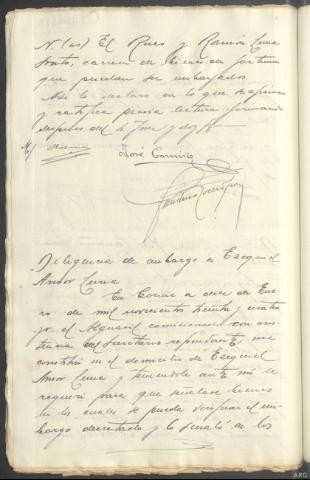 N. (as) El Ruso y Ramón Luna
Soutos, carecen de bienes de fortuna
que puedan ser embargados.
Así lo declara en lo que se afirma
y ratifica previa lectura firmando
después del Sr Juez y doy fe
José Camiño
Diligencia de embargo a Ezequiel
Amor Luna
En Corme a doce de Ene
ro de mil novecientos treinta y cuatro
yo el Alguacil comisionado con asis
tencia del Secretario refrendante, me
constituí en el domicilio de Ezequiel
Amor Luna y teniéndole ante mi le
requerí para que señalase bienes
en los cuales se pueda verificar el em-
bargo decretado y lo señaló en los
ARG